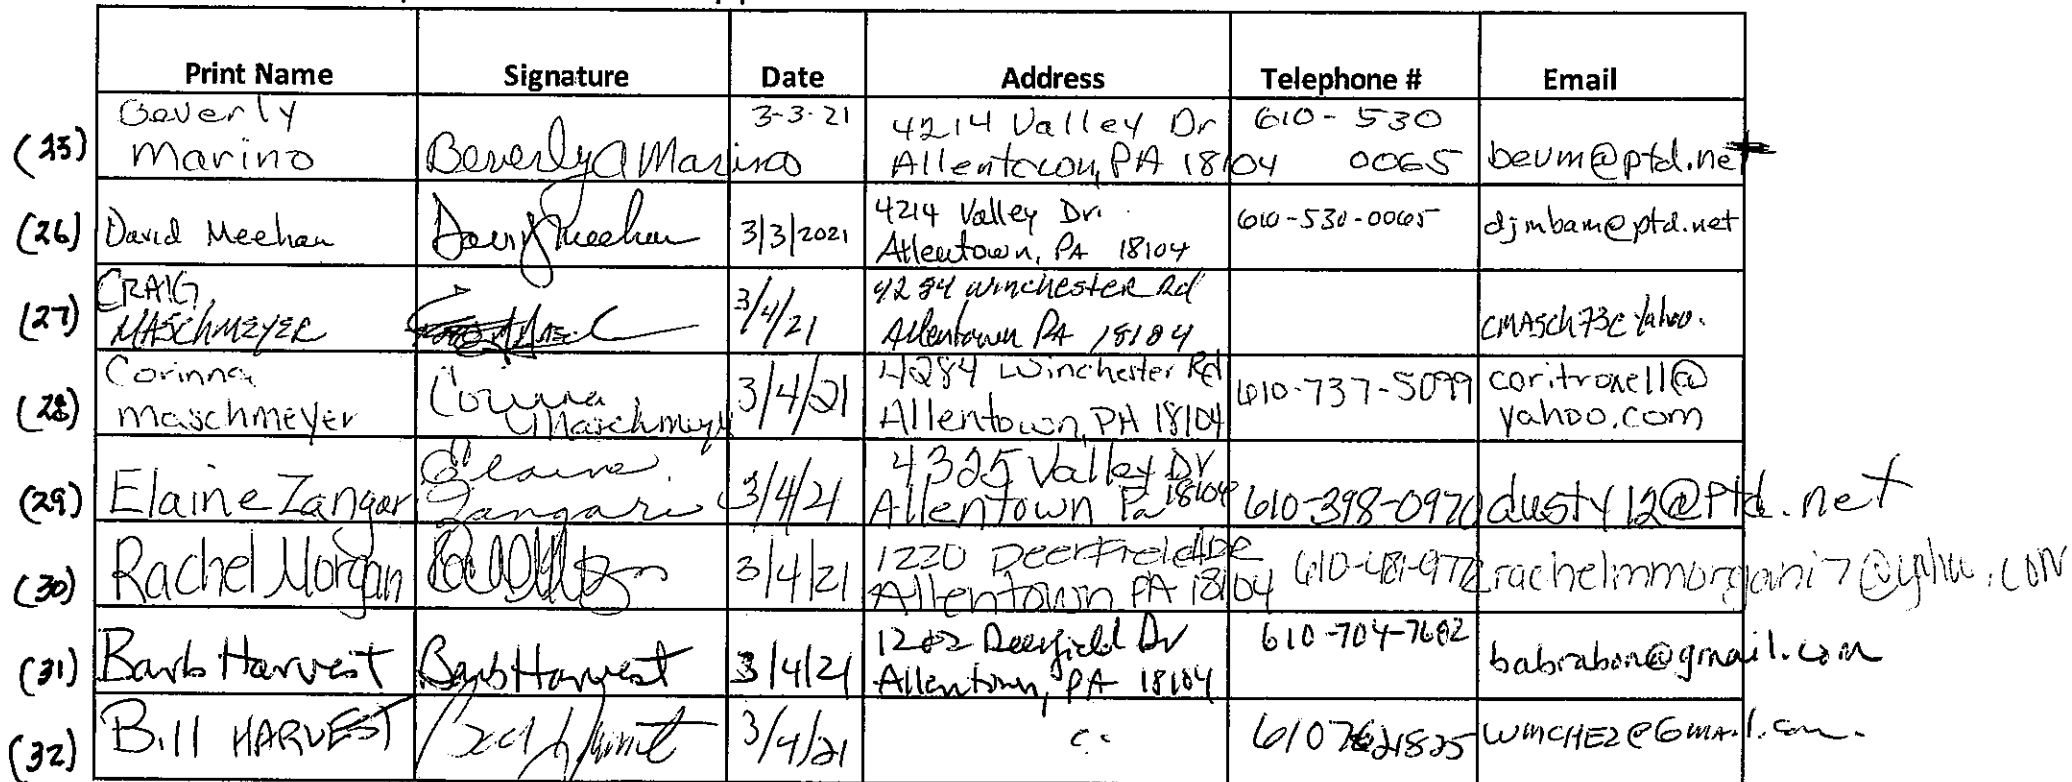 Print Name Signature Date Address Telephone # Email
(25) Beverly Marino Beverly A Marino 3-3-21 4214 Valley Dr Allentown, PA 18104 610-530 0065 bevm@ptd.net
(26) David Meehan David J Meehan 3/3/2021 4214 Valley Dr. Allentown, PA 18104 610-530-0065 djmbam@ptd.net
(27) CRAIG MASCHMEYER 3/4/21 4284 Winchester Rd Allentown PA 18104 CMASCH73@yahoo.
(28) Corinna Maschmeyer Corinna Maschmeyer 3/4/21 4284 Winchester Rd Allentown, PA 18104 610-737-5099 coritroxell@ yahoo.com
(29) Elaine Zangari Elaine Zangari 3/4/21 4325 Valley Dr Allentown Pa 18104 610-398-0970 dusty12@ptd.net
(30) Rachel Morgan 3/4/21 1220 Deerfield Dr Allentown PA 18104
(31) Barb Harvest Barb Harvest 3/4/21 1202 Deerfield Dr Allentown, PA 18104 610-704-7682 babrabon@gmail.com
(32) Bill HARVEST 3/4/21 "